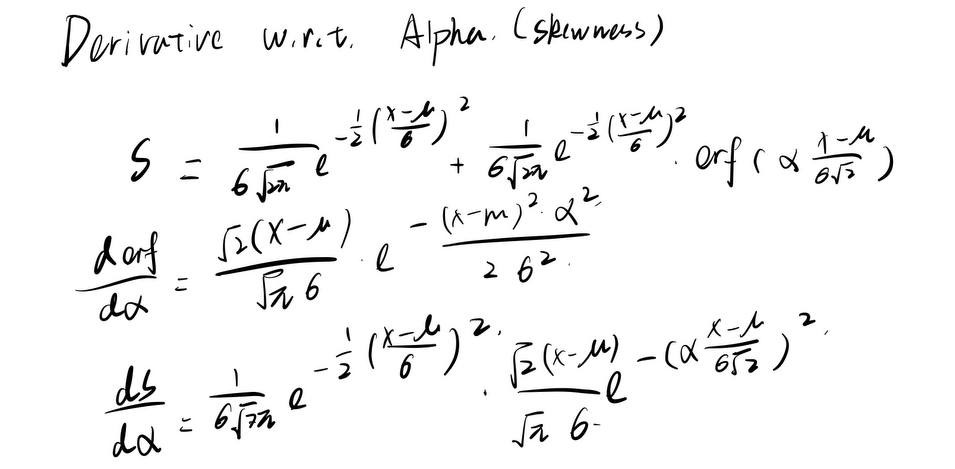 Derivative w.r.t. Alpha. (skewness)
S = \frac{1}{6\sqrt{2π}} e^{-\frac{1}{2}(\frac{x-μ}{6})^2} + \frac{1}{6\sqrt{2π}} e^{-\frac{1}{2}(\frac{x-μ}{6})^2} · erf(α \frac{x-μ}{6\sqrt{2}})
\frac{d erf}{dα} = \frac{\sqrt{2}(x-μ)}{\sqrt{π} 6} · e^{-\frac{(x-m)^2 · α^2}{2 6^2}}
\frac{dS}{dα} = \frac{1}{6\sqrt{2π}} e^{-\frac{1}{2}(\frac{x-μ}{6})^2} · \frac{\sqrt{2}(x-μ)}{\sqrt{π} 6} e^{-(α \frac{x-μ}{6\sqrt{2}})^2}